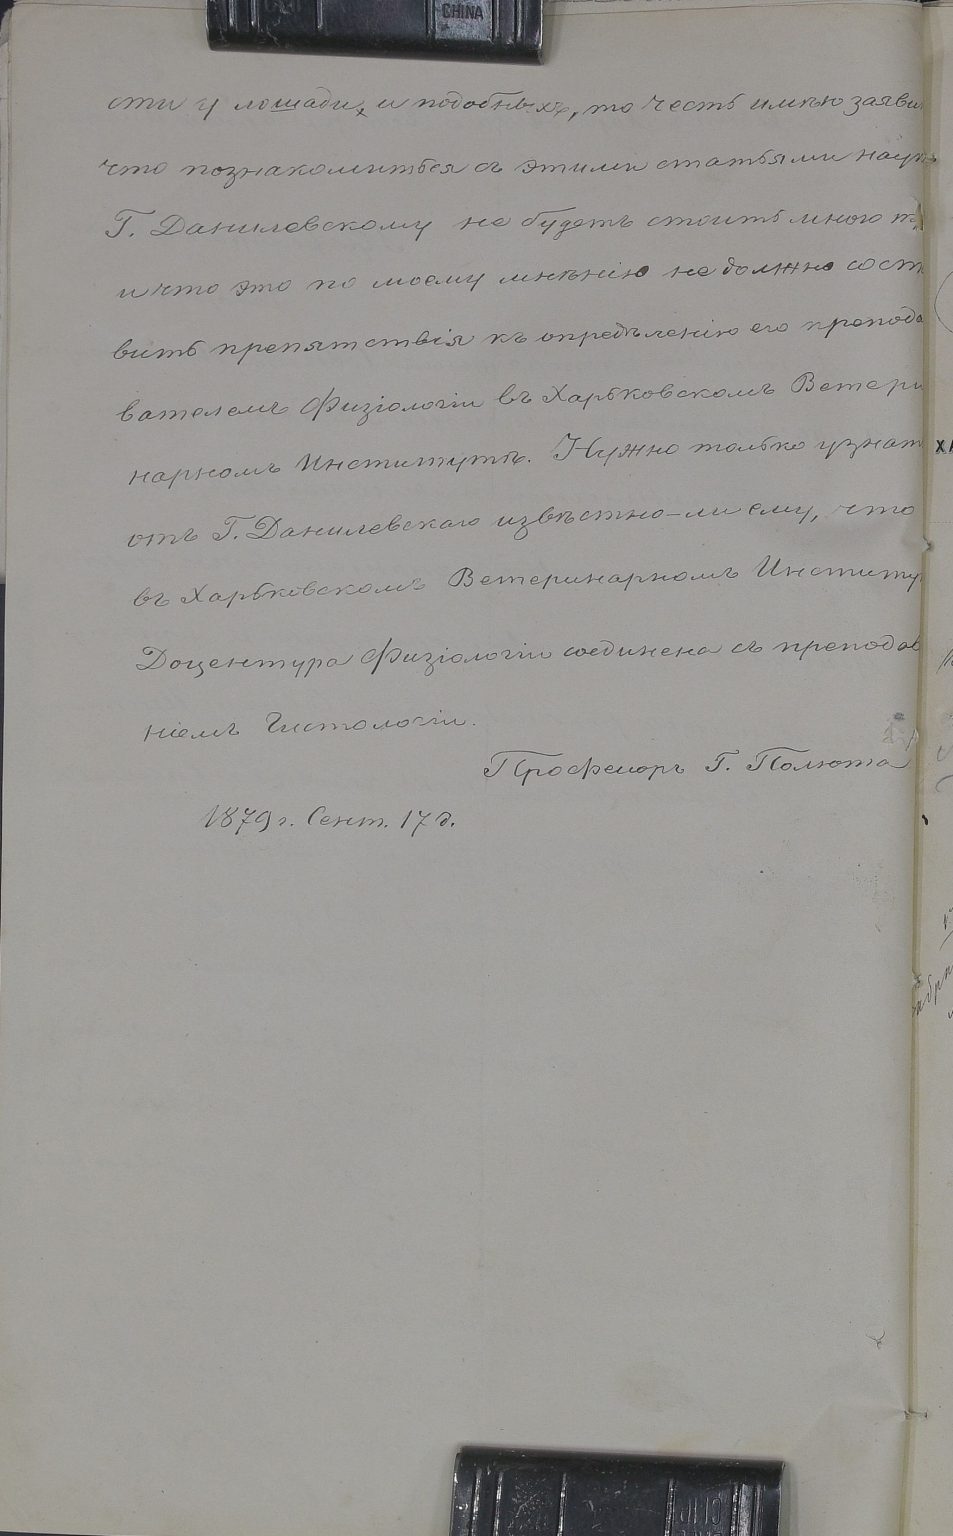 CHINA
сти у лошади, и подобныхъ, то честь имѣю заяви
что познакомиться съ этими статьями наук
Г. Данилевскому не будетъ стоить много т
и что это по моему мнѣнію не должно соста
вить препятствія къ опредѣленію его препода
вателемъ Физіологіи въ Харьковскомъ Ветери
нарномъ Институтѣ. Нужно только узнат
отъ Г. Данилевскаго извѣстно-ли ему, что
въ Харьковскомъ Ветеринарномъ Институ
Доцентура Физіологіи соединена съ преподав
ніемъ Гистологіи.
Професоръ Г. Полюта
1879 г. Сент. 17 д.